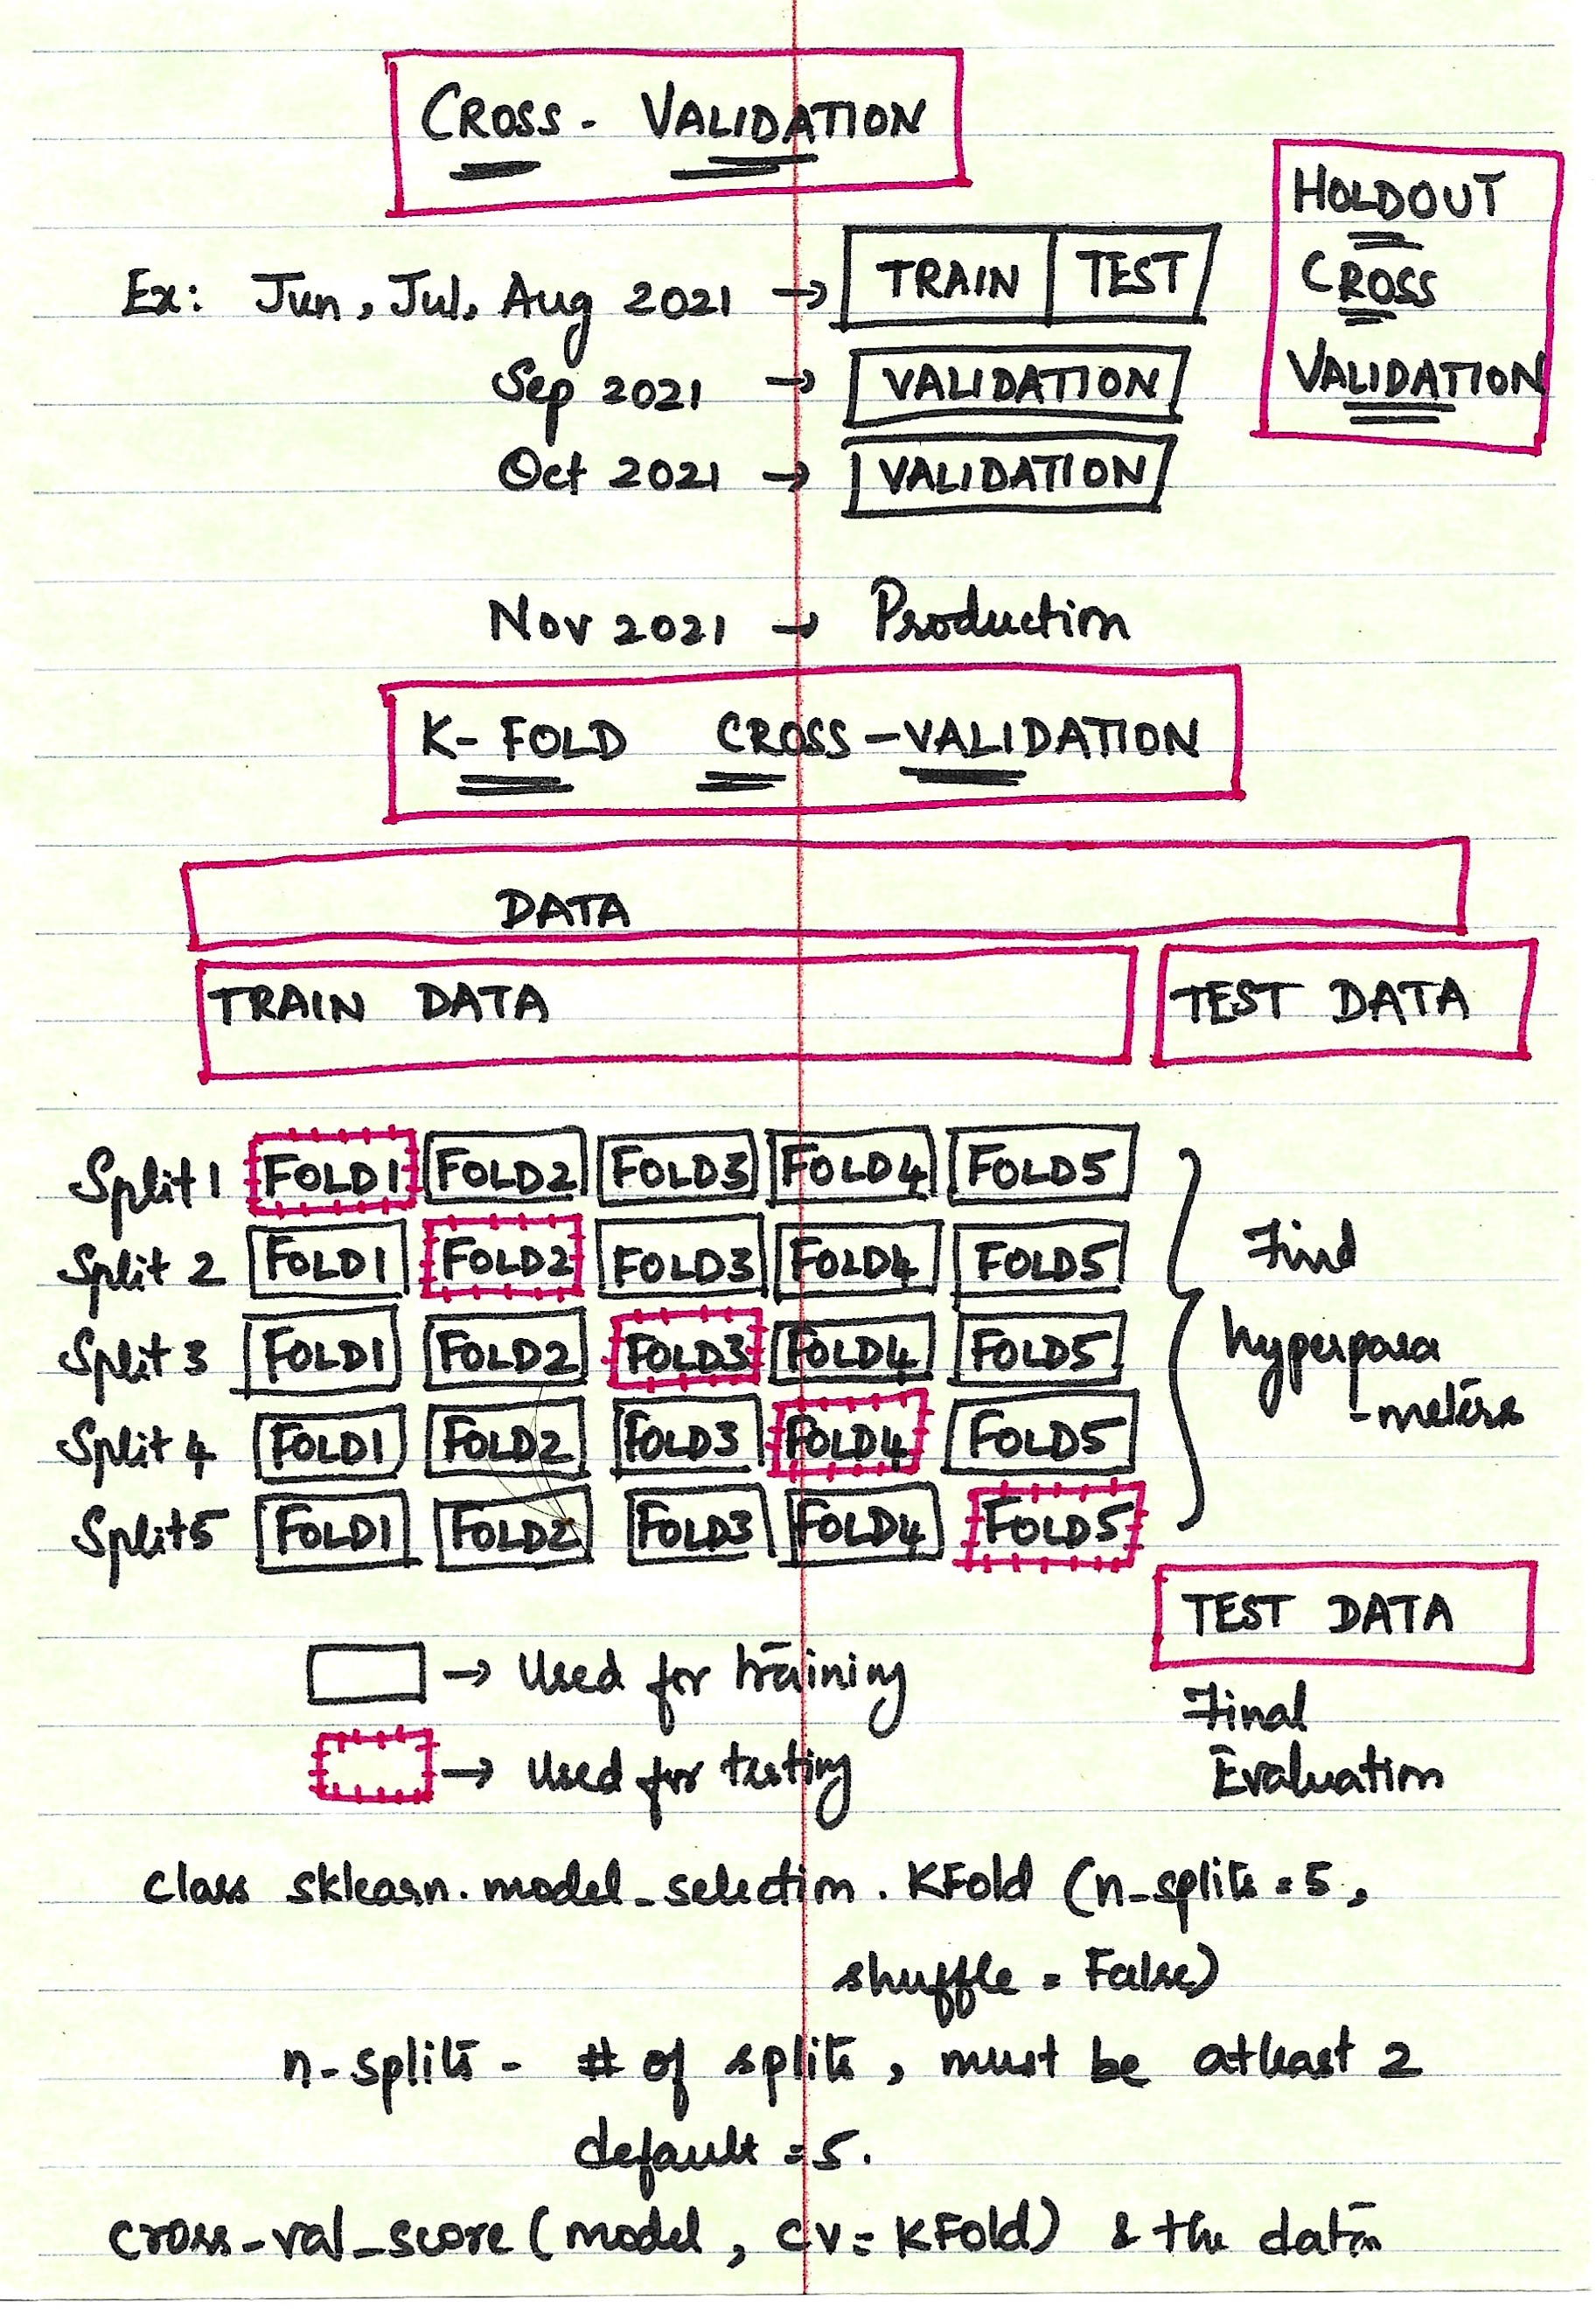 CROSS - VALIDATION
HOLDOUT
CROSS
VALIDATION
Ex: Jun, Jul, Aug 2021 → TRAIN TEST
Sep 2021 → VALIDATION
Oct 2021 → VALIDATION
Nov 2021 → Production
K- FOLD CROSS-VALIDATION
DATA
TRAIN DATA TEST DATA
Split 1 FOLD1 FOLD2 FOLD3 FOLD4 FOLD5
Split 2 FOLD1 FOLD2 FOLD3 FOLD4 FOLD5
Split 3 FOLD1 FOLD2 FOLD3 FOLD4 FOLD5
Split 4 FOLD1 FOLD2 FOLD3 FOLD4 FOLD5
Split 5 FOLD1 FOLD2 FOLD3 FOLD4 FOLD5
Find
hyperpara
-meters
TEST DATA
Final
Evaluation
→ Used for training
→ Used for testing
class sklearn.model_selection.KFold (n_splits=5,
shuffle = False)
n-splits - # of splits, must be atleast 2
default = 5.
cross-val_score (model, cv = KFold) & the data